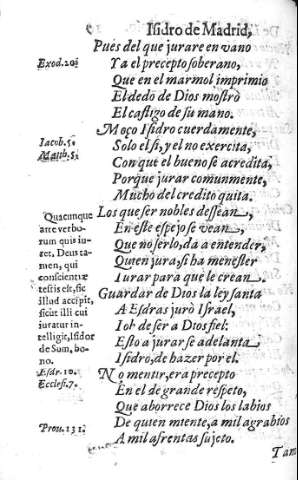 Isidro de Madrid,
Pues del que jurare en vano
Ya el precepto soberano,
Que en el marmol imprimio
El dedo de Dios mostrò
El castigo de su mano.
Moço Isidro cuerdamente,
Solo el si, y el no exercita,
Con que el bueno se acredita,
Porque jurar comunmente,
Mucho del credito quita.
Los que ser nobles dessean,
En este espejo se vean,
Que no serlo, da a entender,
Quien jura, si ha menester
Iurar para que le crean.
Guardar de Dios la ley santa
A Esdras jurò Israel,
Iob de ser a Dios fiel:
Esto a jurar se adelanta
Isidro, de hazer por el.
No mentir, era precepto
En el de grande respeto,
Que aborrece Dios los labios
De quien miente, a mil agrabios
A mil afrentas sujeto.
Exod. 20:
Iacob. 5.
Matth. 5:
Quacumque
arte verbo-
rum quis iu-
ret. Deus ta-
men, qui
conscientiæ
testis est, sic
illud accipit,
sicut illi cui
iuratur in-
telligit, Isidor
de Sum, bo-
no.
Esdr. 10.
Ecclesi. 7.
Prou. 13 1.